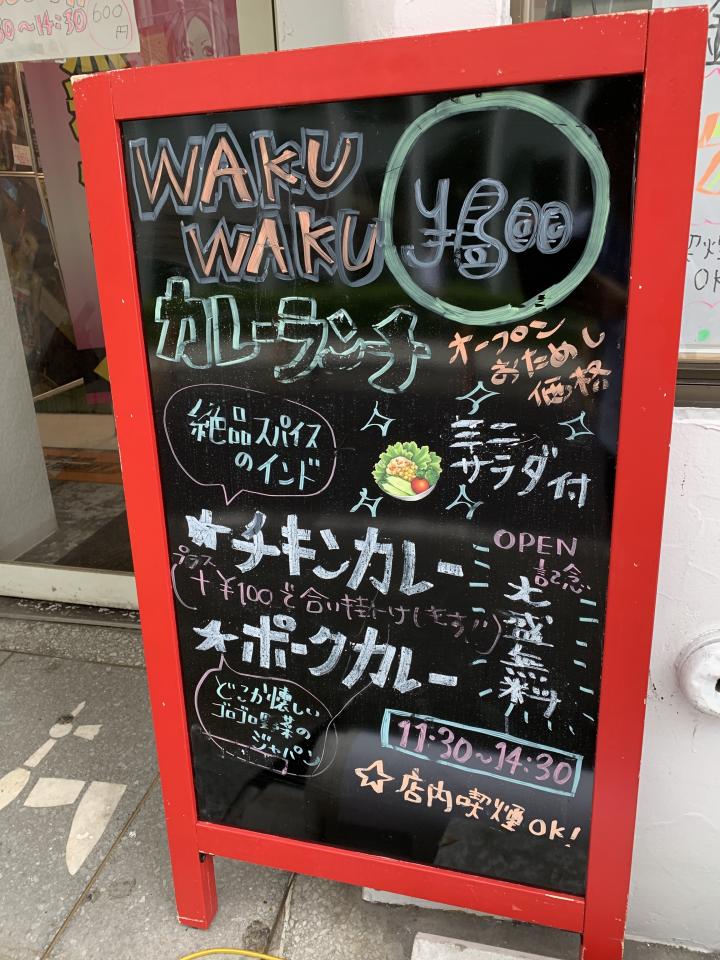 0~14:30
600円
WAKU
WAKU
カレーランチ
オープン
おためし
価格
絶品スパイス
のインド
ミニ
サラダ付
★チキンカレー
プラス
(+¥100で合い掛けします!!)
★ポークカレー
OPEN
記念
大盛無料
どこか懐しい
ゴロゴロ野菜の
ジャパン
11:30~14:30
☆店内喫煙OK!
OK